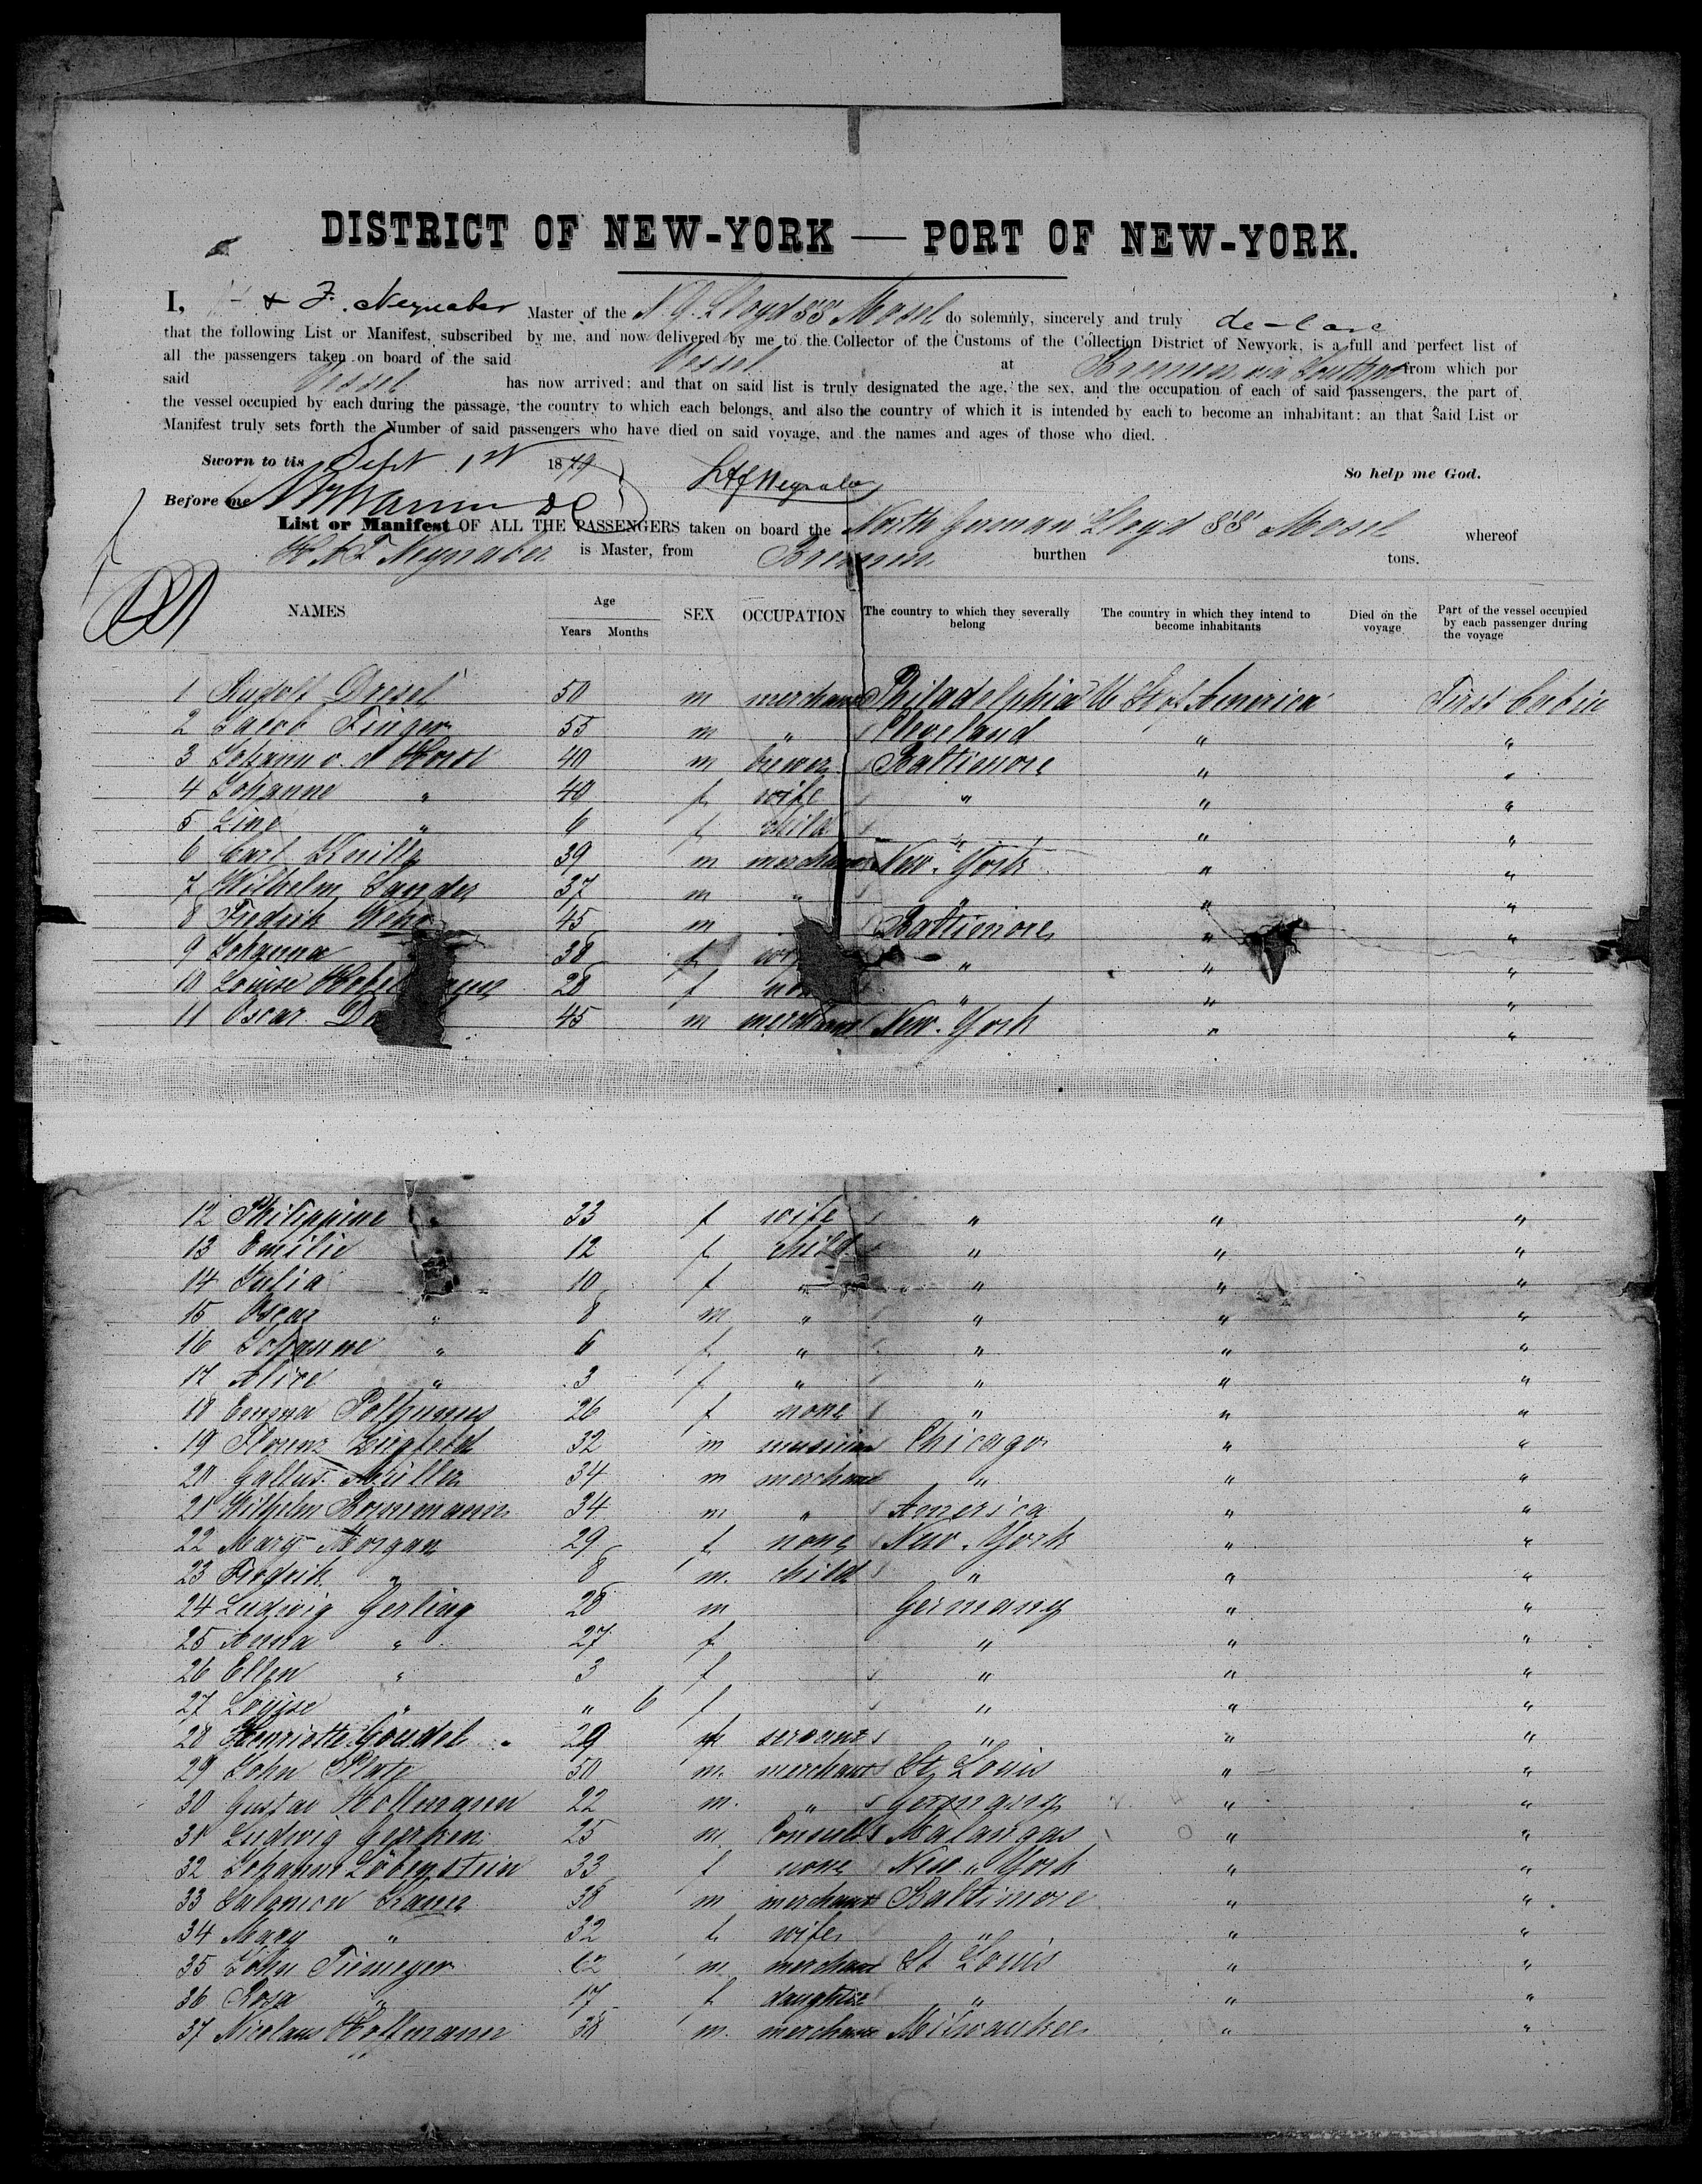 DISTRICT OF NEW-YORK — PORT OF NEW-YORK.
I, & F. Neynaber Master of the N. G. Lloyd SS Mosel do solemnly, sincerely and truly declare
that the following List or Manifest, subscribed by me, and now delivered by me to the Collector of the Customs of the Collection District of Newyork, is a full and perfect list of
all the passengers taken on board of the said Vessel at Bremen via from which por
said Vessel has now arrived; and that on said list is truly designated the age, the sex, and the occupation of each of said passengers, the part of
the vessel occupied by each during the passage, the country to which each belongs, and also the country of which it is intended by each to become an inhabitant: an that Said List or
Manifest truly sets forth the Number of said passengers who have died on said voyage, and the names and ages of those who died.
Sworn to tis Sept. 1st 1879 HAF Neynaber So help me God.
Before me
List or Manifest OF ALL THE PASSENGERS taken on board the North German Lloyd SS Mosel whereof
H. A. F. Neynaber is Master, from Bremen burthen tons.
NAMES Age Years Months SEX OCCUPATION The country to which they severally belong The country in which they intend to become inhabitants Died on the voyage Part of the vessel occupied by each passenger during the voyage
1 Rudolf Dresel 50 m merchant Philadelphia U St of America First Cabin
2 Jacob Finger 55 m " Cleveland " "
3 Johann v. d Horst 40 m brewer Baltimore " "
4 Johanne " 40 f wife " " "
5 Line " 6 f child " " "
6 Carl 39 m merchant New-York " "
7 Wilhelm Sander 37 m " " " "
8 Fredrik 45 m Baltimore " "
9 Johanna 38 f " " "
10 Louise 28 f " " "
11 Oscar 45 m merchant New-York " "
12 Philippine " 33 f wife " " "
13 Emilie 12 f child " " "
14 Julia 10 f " " " "
15 Oscar " 8 m " " " "
16 Johanne " 6 f " " " "
17 Alice " 3 f " " " "
18 Emma Polhemus 26 f none " " "
19 Florenz Ziegfeld 32 m musician Chicago " "
20 Gallus Müller 34 m merchant " " "
21 Wilhelm Bornemann 34 m " America " "
22 Mary Morgan 29 f none New-York " "
23 Fredrik " 8 m. child " " "
24 Ludwig Gerling 28 m Germany " "
25 Anna " 27 f " " "
26 Ellen " 3 f " " "
27 Louise " " 6 f " " "
28 Henriette Goudel 29 f servant " " "
29 John Platz 50 m. merchant St. Louis " "
30 Gustav Hollmann 22 m. " Germany " "
31 Ludwig Gerken 25 m. Consul Malangas " "
32 Johanne Löbenstein 33 f none New-York " "
33 Salomon 38 m merchant Baltimore " "
34 Mary " 32 f. wife " " "
35 John Tiemeyer 62 m merchant St Louis " "
36 Rosa " 17 f daughter " " "
37 Nicolaus Hoffmann 38 m. merchant Milwaukee " "